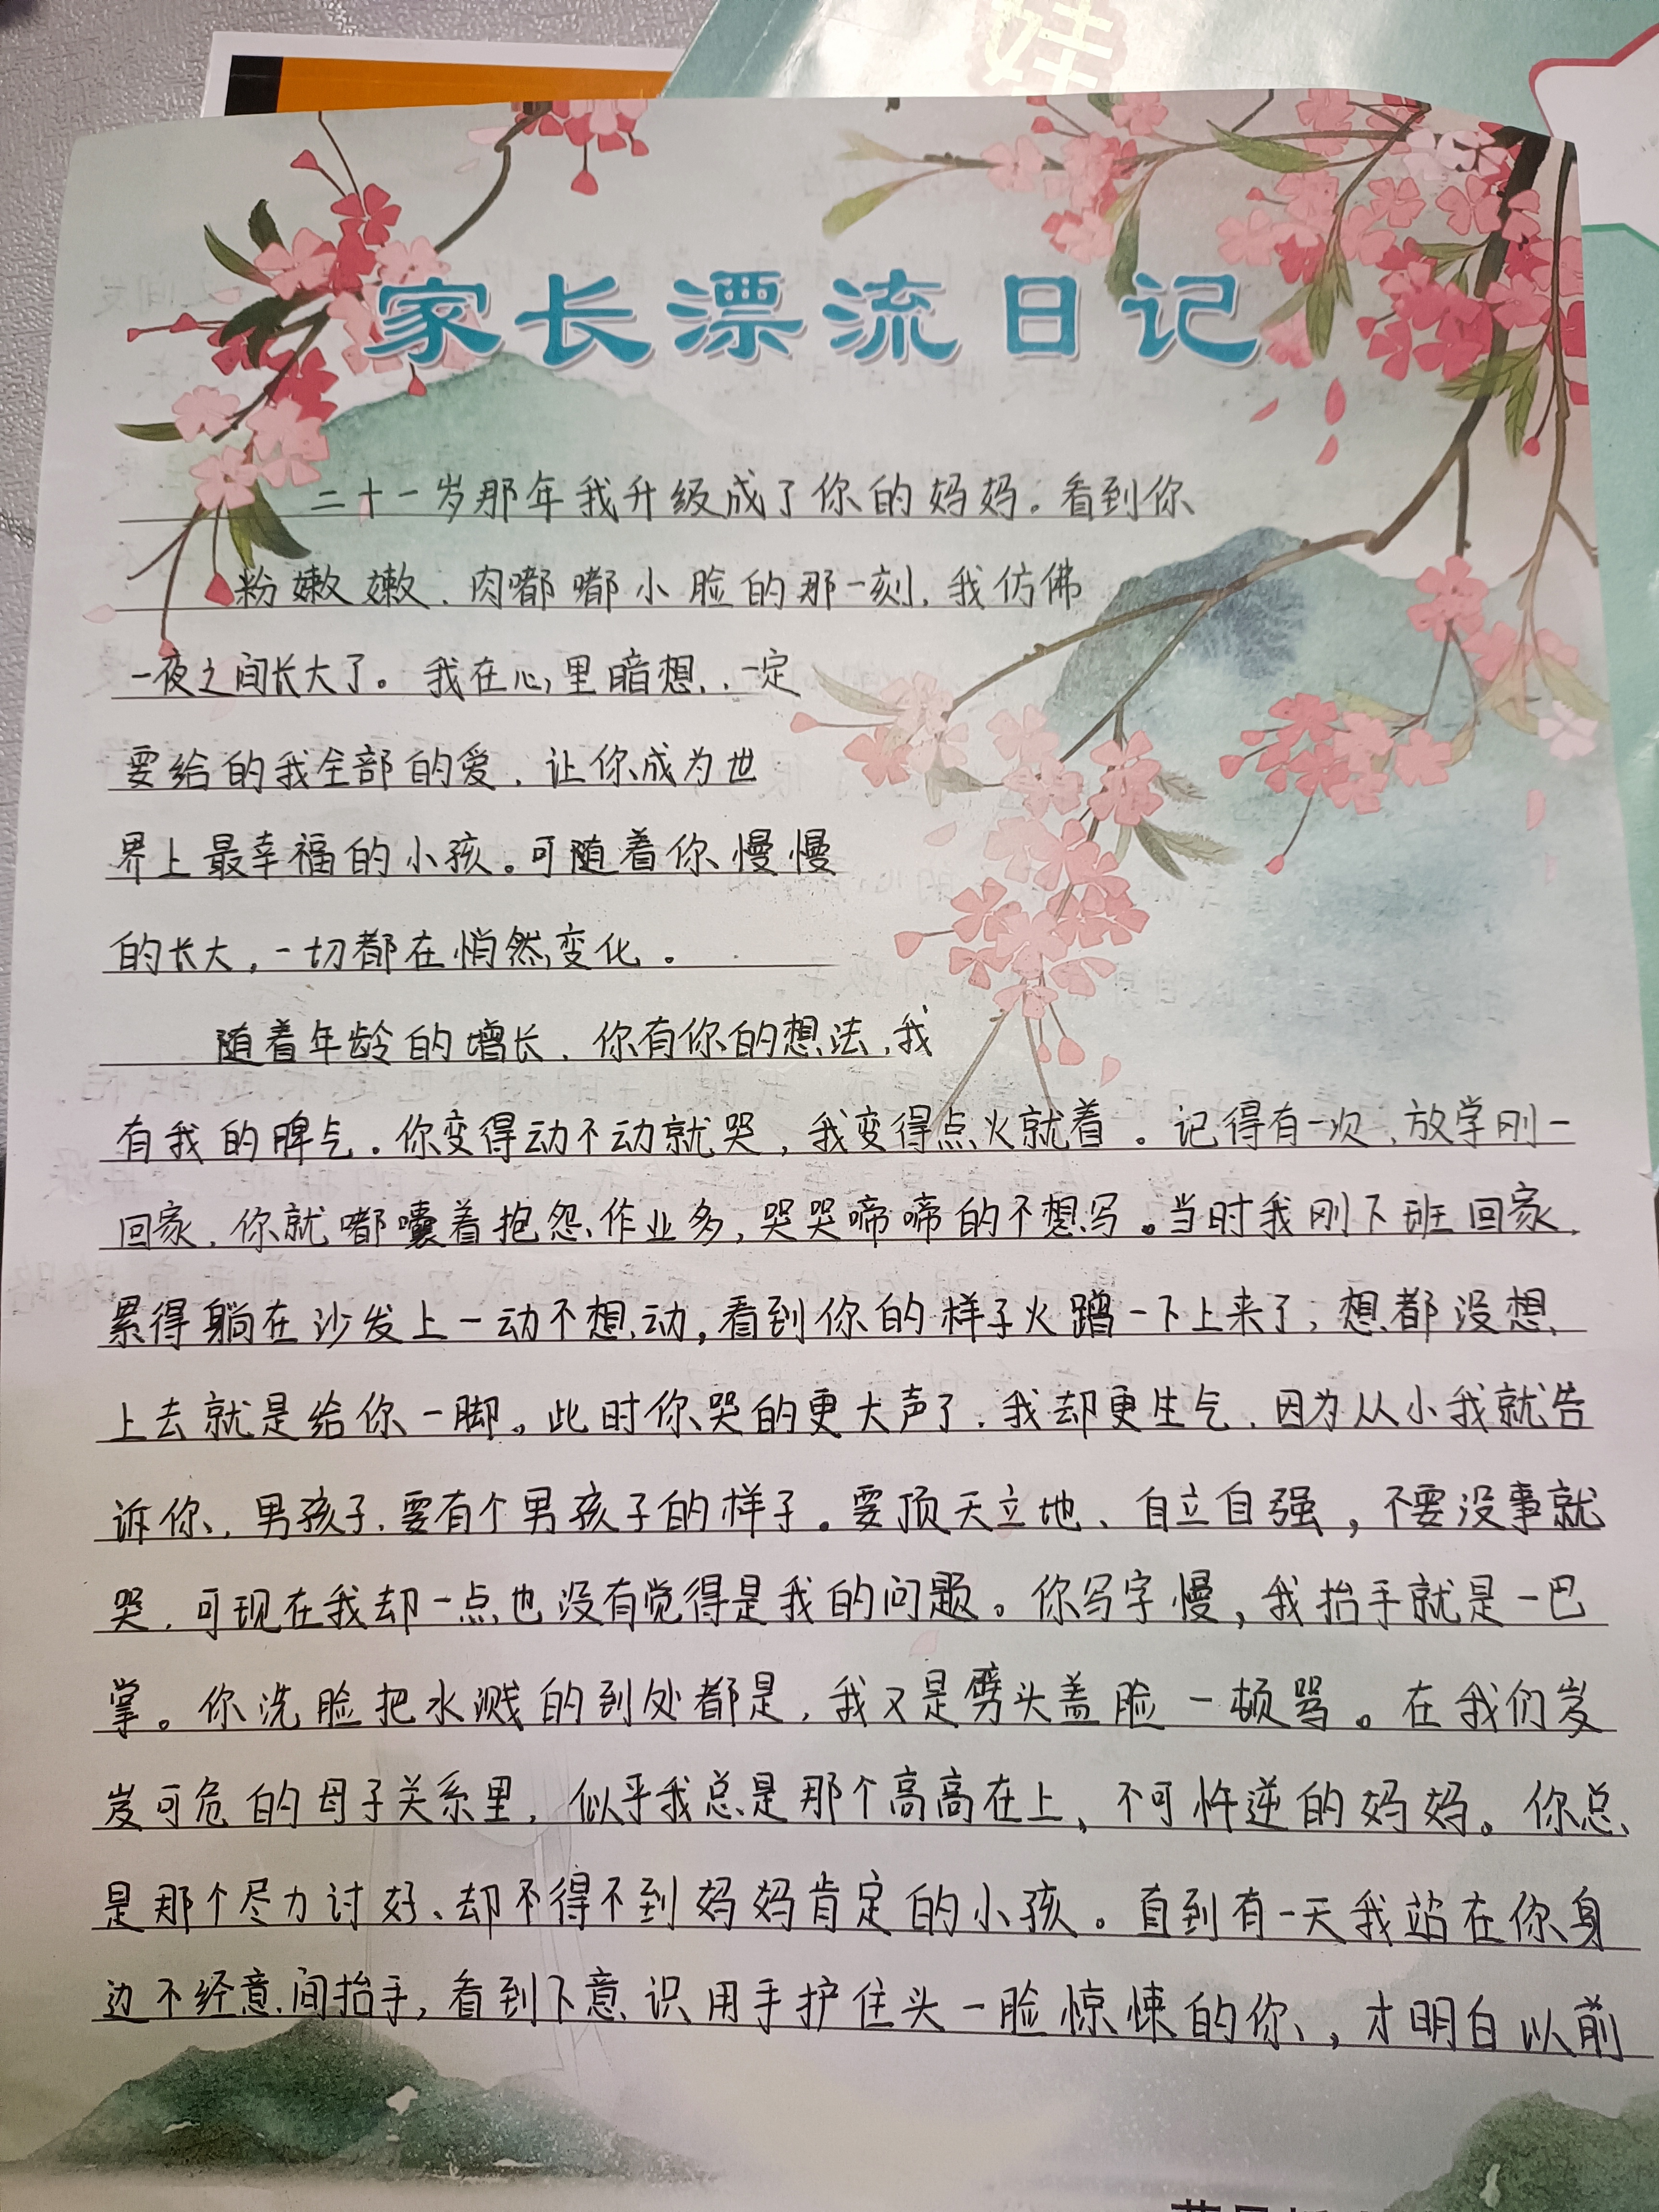 娃
家长漂流日记
二十一岁那年我升级成了你的妈妈。看到你
粉嫩嫩、肉嘟嘟小脸的那一刻,我仿佛
一夜之间长大了。我在心里暗想,一定
要给的我全部的爱,让你成为世
界上最幸福的小孩。可随着你慢慢
的长大,一切都在悄然变化。
随着年龄的增长,你有你的想法,我
有我的脾气。你变得动不动就哭,我变得点火就着。记得有一次,放学刚一
回家,你就嘟囔着抱怨作业多,哭哭啼啼的不想写。当时我刚下班回家,
累得躺在沙发上一动不想动,看到你的样子火蹭一下上来了;想都没想,
上去就是给你一脚。此时你哭的更大声了,我却更生气,因为从小我就告
诉你,男孩子,要有个男孩子的样子。要顶天立地、自立自强,不要没事就
哭,可现在我却一点也没有觉得是我的问题。你写字慢,我抬手就是一巴
掌。你洗脸把水溅的到处都是,我又是劈头盖脸一顿骂。在我们岌
岌可危的母子关系里,似乎我总是那个高高在上、不可忤逆的妈妈。你总
是那个尽力讨好、却不得不到妈妈肯定的小孩。直到有一天我站在你身
边不经意间抬手,看到下意识用手护住头一脸惊悚的你,才明白以前